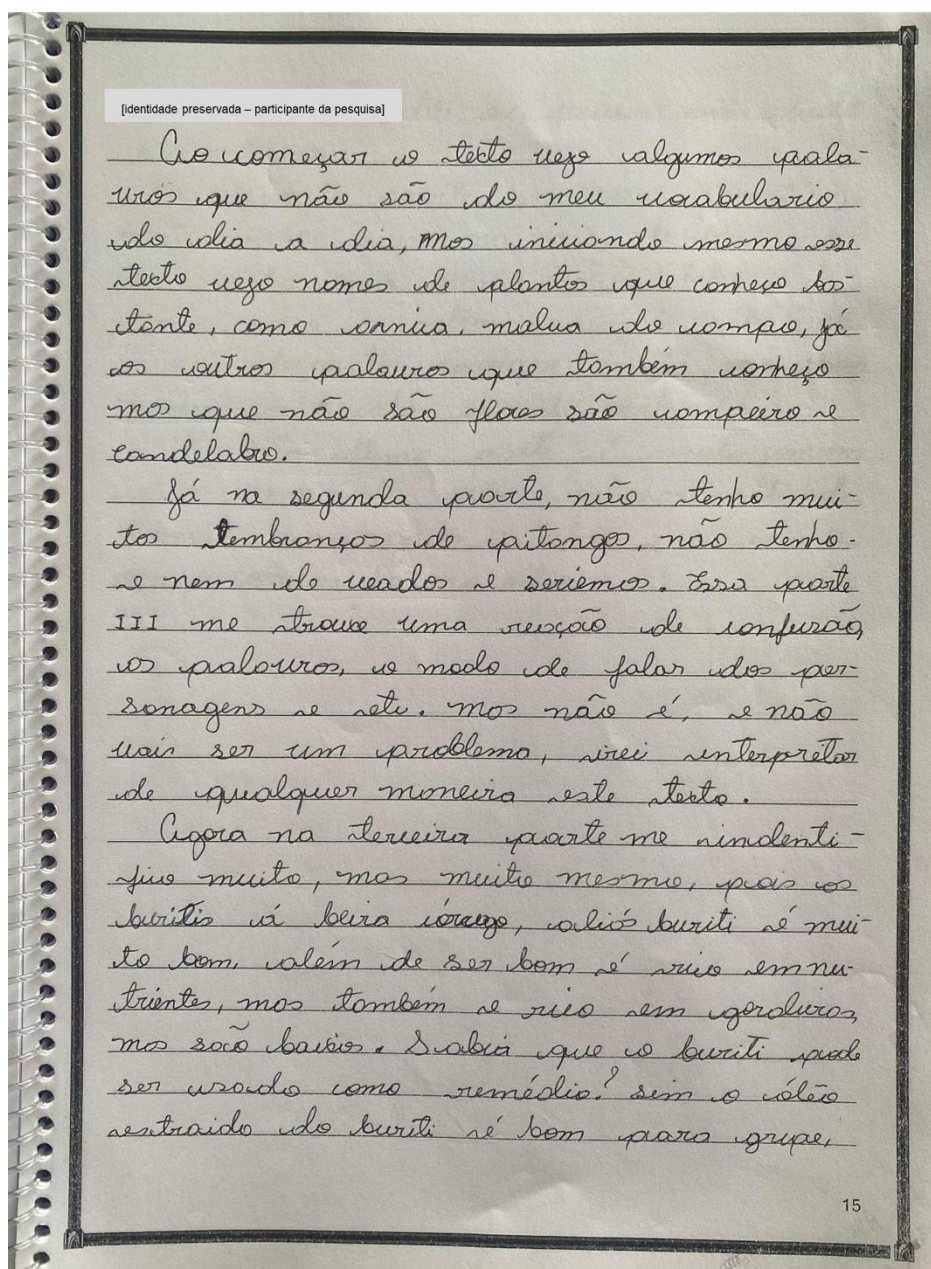 [identidade preservada – participante da pesquisa]
Ao começar o texto vejo algumas pala-
vras que não são do meu vocabulario
do dia a dia, mas iniciando mesmo esse
texto vejo nomes de plantas que conheço bas-
tante, como arnica, malva do campo, já
as outras palavras que também conheço
mas que não são flores são campeiro e
candelabro.
Já na segunda parte, não tenho mui-
tas lembranças de pitangas, não tenho
e nem de veados e seriemas. Essa parte
III me trouxe uma reação de confusão,
as palavras, o modo de falar dos per-
sonagens e etc. mas não é, e não
vais ser um problema, irei interpretar
de qualquer maneira este texto.
Agora na terceira parte me indenti-
fico muito, mas muito mesmo, pois os
buritis á beira córrego, aliás buriti é mui-
to bom, além de ser bom é rico em nu-
trientes, mas também e rico em gorduras,
mas são baixas. Sabia que o buriti pode
ser usado como remédio? sim o óleo
extraido do buriti é bom para gripe,
15